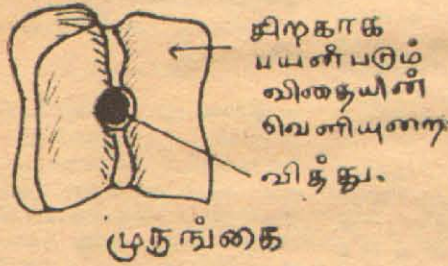 சிறகாக
பயன்படும்
விதையின்
வெளியுறை
வித்து.
முருங்கை